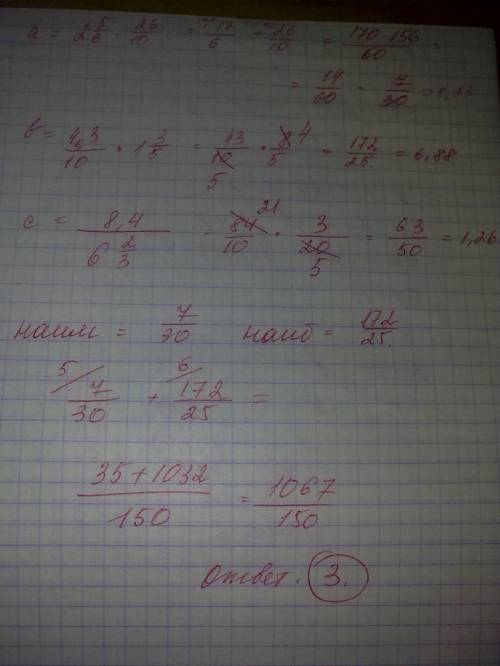 a = 2 5/6 - 26/10 = 17/6 - 26/10 = 170-156/60 =
= 14/60 = 7/30 = 0,23
b = 4,3/10 · 1 3/5 = 43/10 5 · 8 4/5 = 172/25 = 6,88
c = 8,4/6 2/3 = 84 21/10 · 3/20 5 = 63/50 = 1,26
наим = 7/30 наиб = 172/25
5/ 7/30 + 6/ 172/25 =
35+1032/150 = 1067/150
Ответ: 3.